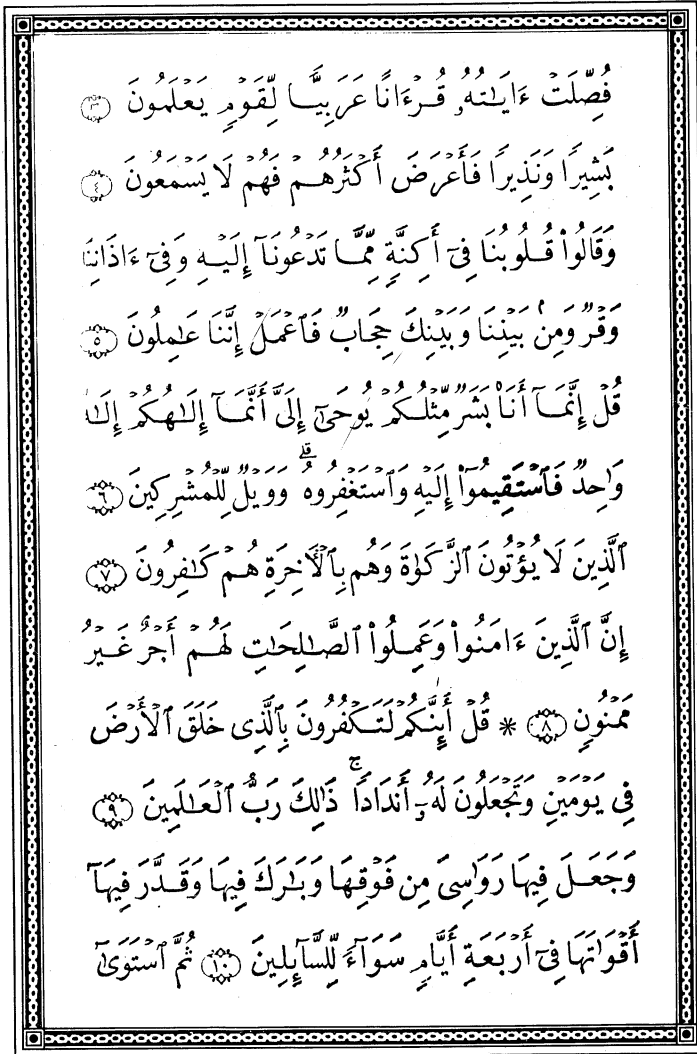 فُصِّلَتْ ءَايَٰتُهُۥ قُرْءَانًا عَرَبِيًّا لِّقَوْمٍ يَعْلَمُونَ ٣
بَشِيرًا وَنَذِيرًا فَأَعْرَضَ أَكْثَرُهُمْ فَهُمْ لَا يَسْمَعُونَ ٤
وَقَالُوا۟ قُلُوبُنَا فِىٓ أَكِنَّةٍ مِّمَّا تَدْعُونَآ إِلَيْهِ وَفِىٓ ءَاذَانِنَا
وَقْرٌ وَمِنۢ بَيْنِنَا وَبَيْنِكَ حِجَابٌ فَٱعْمَلْ إِنَّنَا عَٰمِلُونَ ٥
قُلْ إِنَّمَآ أَنَا۠ بَشَرٌ مِّثْلُكُمْ يُوحَىٰٓ إِلَىَّ أَنَّمَآ إِلَٰهُكُمْ إِلَٰهٌ
وَٰحِدٌ فَٱسْتَقِيمُوٓا۟ إِلَيْهِ وَٱسْتَغْفِرُوهُ ۗ وَوَيْلٌ لِّلْمُشْرِكِينَ ٦
ٱلَّذِينَ لَا يُؤْتُونَ ٱلزَّكَوٰةَ وَهُم بِٱلْءَاخِرَةِ هُمْ كَٰفِرُونَ ٧
إِنَّ ٱلَّذِينَ ءَامَنُوا۟ وَعَمِلُوا۟ ٱلصَّٰلِحَٰتِ لَهُمْ أَجْرٌ غَيْرُ
مَمْنُونٍ ٨ * قُلْ أَئِنَّكُمْ لَتَكْفُرُونَ بِٱلَّذِى خَلَقَ ٱلْأَرْضَ
فِى يَوْمَيْنِ وَتَجْعَلُونَ لَهُۥٓ أَندَادًا ۚ ذَٰلِكَ رَبُّ ٱلْعَٰلَمِينَ ٩
وَجَعَلَ فِيهَا رَوَٰسِىَ مِن فَوْقِهَا وَبَٰرَكَ فِيهَا وَقَدَّرَ فِيهَآ
أَقْوَٰتَهَا فِىٓ أَرْبَعَةِ أَيَّامٍ سَوَآءً لِّلسَّآئِلِينَ ١٠ ثُمَّ ٱسْتَوَىٰٓ